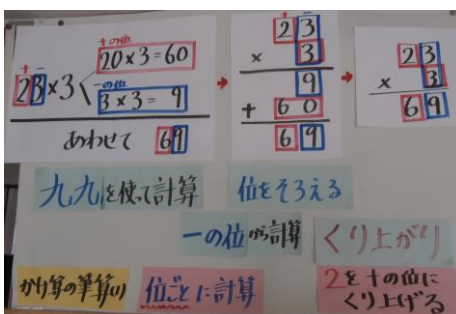 十の位
20×3=60
十 一
23×3
一の位
3×3= 9
あわせて 69
十 一
23
× 3
9
+ 60
69
23
× 3
69
九九を使って計算
位をそろえる
一の位から計算
くり上がり
かけ算の筆算(1)
位ごとに計算
2を十の位に
くり上げる